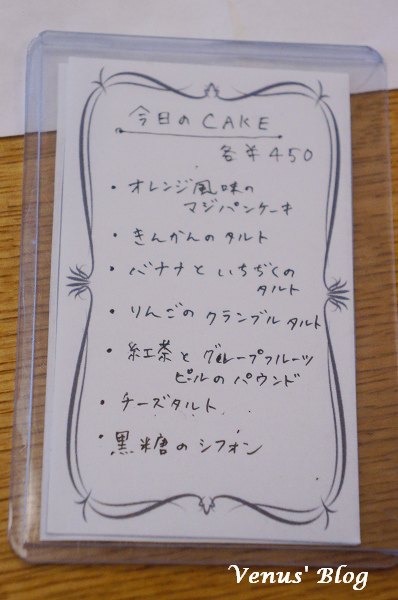 今日のCAKE
各¥450
・オレンジ風味の
マジパンケーキ
・きんかんのタルト
・バナナといちぢくの
タルト
・りんごのクランブルタルト
・紅茶とグレープフルーツ
ピールのパウンド
・チーズタルト
・黒糖のシフォン
Venus' Blog